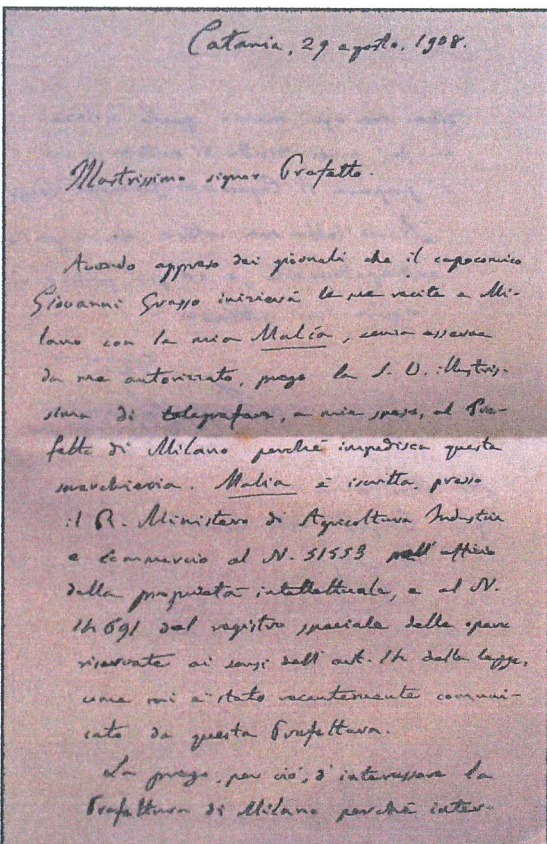 Catania, 29 agosto, 1908.
Illustrissimo signor Prefetto.
Avendo appreso dai giornali che il capocomico
Giovanni Grasso inizierà le sue recite a Mi-
lano con la mia Malìa, senza esserne
da me autorizzato, prego la S. V. illustris-
sima di telegrafare, a mie spese, al Pre-
fetto di Milano perchè impedisca questa
soverchieria. Malìa è iscritta, presso
il R. Ministero di Agricoltura Industria
e Commercio al N. 51553 nell'ufficio
della proprietà intellettuale, e al N.
14691 del registro speciale delle opere
riservate ai sensi dell'art. 14 della legge,
come mi è stato recentemente comuni-
cato da questa Prefettura.
La prego, per ciò, d'interessare la
Prefettura di Milano perchè inter-